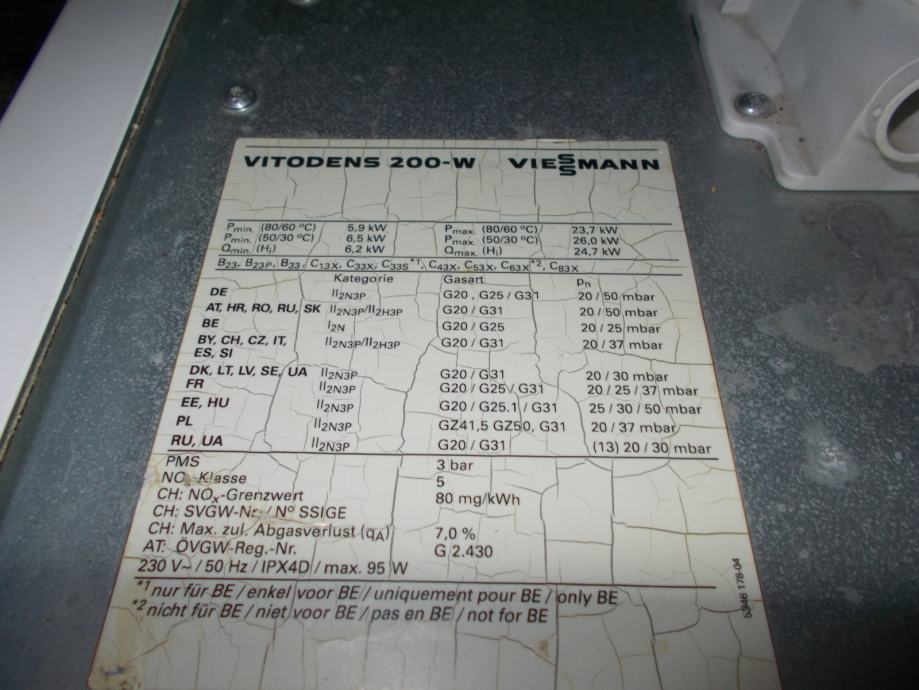 VITODENS 200-W VIESSMANN
Pmin. (80/60 °C) 5,9 kW Pmax. (80/60 °C) 23,7 kW
Pmin. (50/30 °C) 6,5 kW Pmax. (50/30 °C) 26,0 kW
Qmin. (Hi) 6,2 kW Qmax. (Hi) 24,7 kW
B23, B23P, B33, C13X, C33X, C33S*1, C43X, C53X, C63X*2, C83X
Kategorie Gasart pn
DE II2N3P G20, G25 / G31 20 / 50 mbar
AT, HR, RO, RU, SK II2N3P/II2H3P G20 / G31 20 / 50 mbar
BE I2N G20 / G25 20 / 25 mbar
BY, CH, CZ, IT, II2N3P/II2H3P G20 / G31 20 / 37 mbar
ES, SI
DK, LT, LV, SE, UA II2N3P G20 / G31 20 / 30 mbar
FR II2N3P G20 / G25 / G31 20 / 25 / 37 mbar
EE, HU II2N3P G20 / G25.1 / G31 25 / 30 / 50 mbar
PL II2N3P GZ41,5 GZ50, G31 20 / 37 mbar
RU, UA II2N3P G20 / G31 (13) 20 / 30 mbar
PMS 3 bar
NOx-Klasse 5
CH: NOx-Grenzwert 80 mg/kWh
CH: SVGW-Nr. / N° SSIGE
CH: Max. zul. Abgasverlust (qA) 7,0 %
AT: ÖVGW-Reg.-Nr. G 2.430
230 V~ / 50 Hz / IPX4D / max. 95 W
*1 nur für BE / enkel voor BE / uniquement pour BE / only BE
*2 nicht für BE / niet voor BE / pas en BE / not for BE
5346 178-04